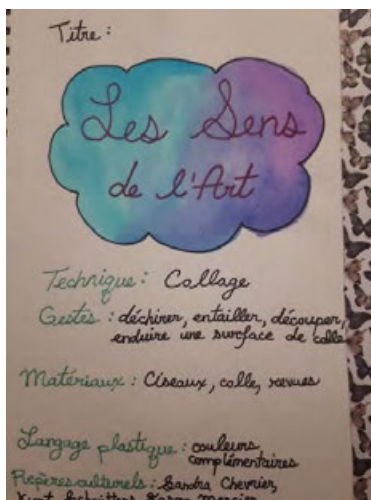 Titre :
Les Sens
de l'Art
Technique : Collage
Gestes : déchirer, entailler, découper,
enduire une surface de colle
Matériaux : Ciseaux, colle, revues
Langage plastique : couleurs
complémentaires
Repères culturels : Sandra Chevrier,
Kurt Schwitters,